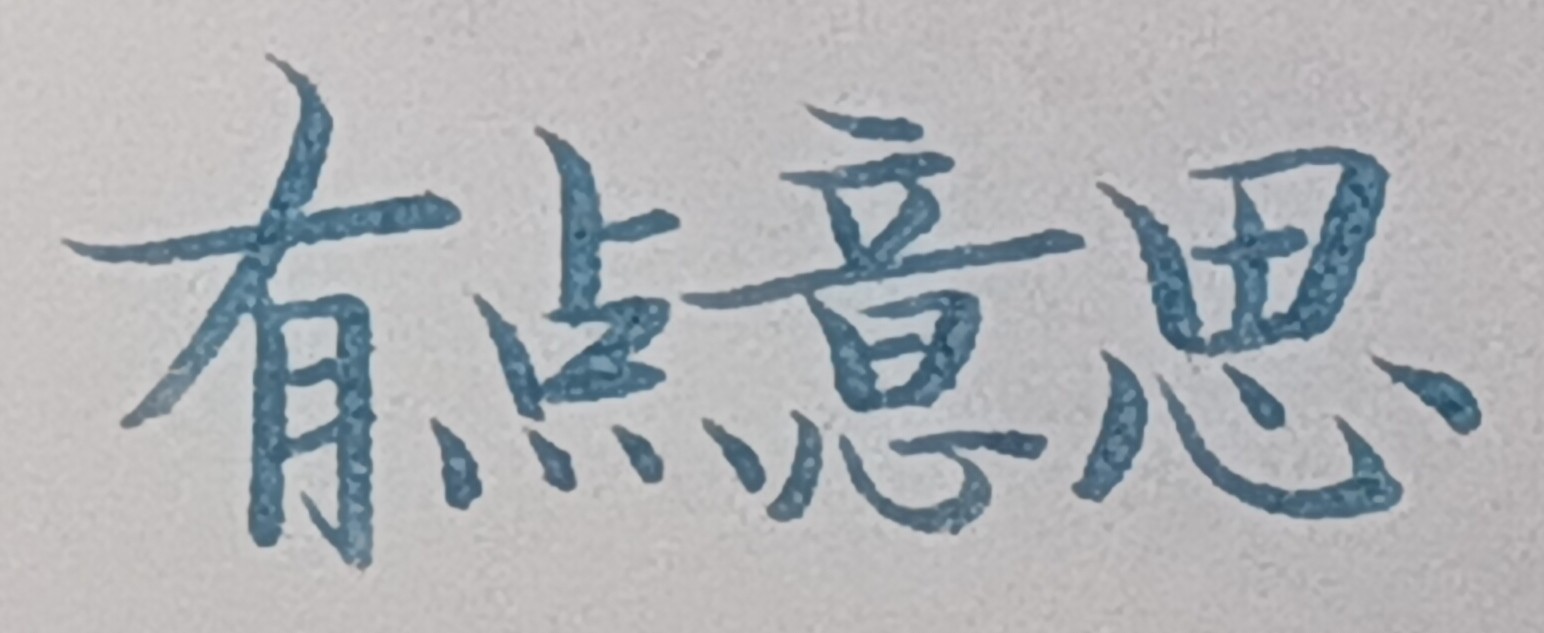 有点意思